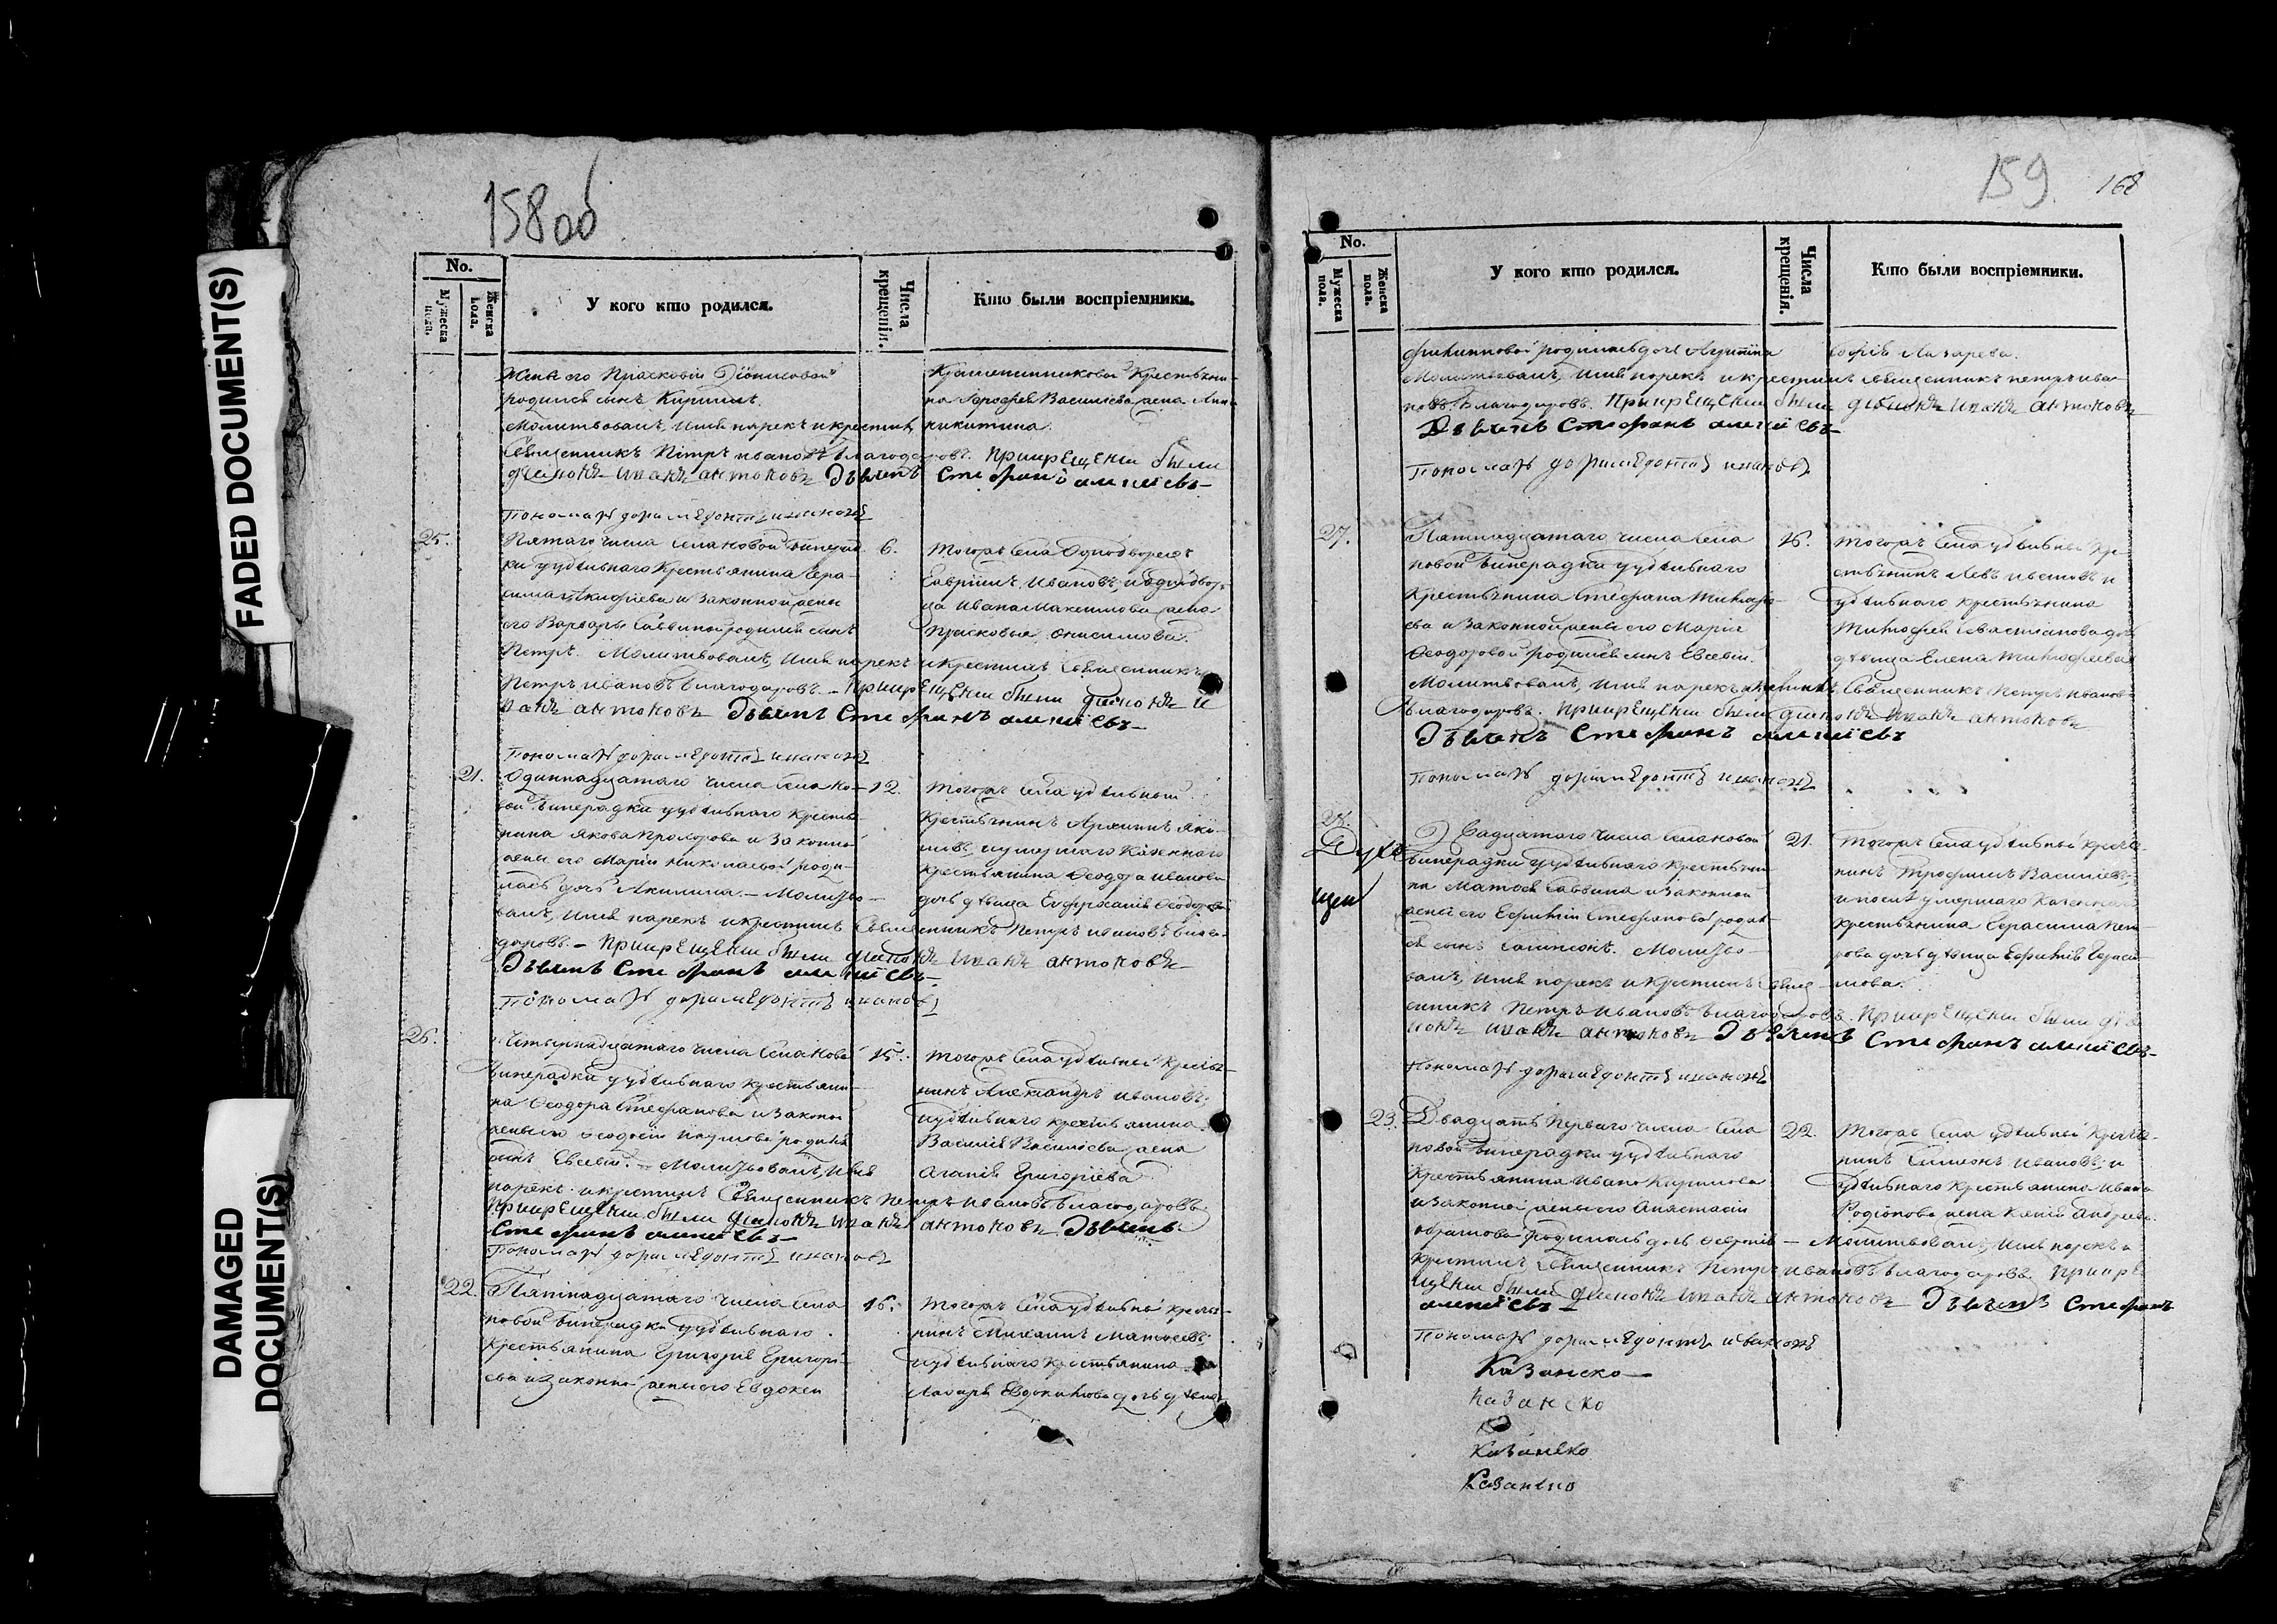 FADED DOCUMENT(S)
DAMAGED DOCUMENT(S)
158об
No.
Мужеска пола.
Женска пола.
У кого кто родился.
Числа крещенія.
Кто были воспріемники.
жены его Прасковіи Діонисовой
родился сынъ Кирилъ.
Молитвовалъ, имя нарекъ и крестилъ
Священникъ Петръ Ивановъ Благодаровъ. При крещеніи были
діаконъ Иванъ Антоновъ Дьячекъ Стефанъ Алексіевъ
Пономарь Доримедонтъ Ивановъ
Крестьяни-
на Ерофея Васильева жена Анна
Никитина.
25.
Пятаго числа села Новой
ки удѣльнаго крестьянина Гера-
сима и законной жены
его Варвары Саввиной родился сынъ
Петръ. Молитвовалъ, имя нарекъ и крестилъ Священникъ
Петръ Ивановъ Благодаровъ. При крещеніи были діаконъ И
ванъ Антоновъ Дьячекъ Стефанъ Алексіевъ
Пономарь Доримедонтъ Ивановъ
6.
Тогожъ села Однодворецъ
Гавріилъ Ивановъ, и однодвор-
ца Ивана Максимова жена
Прасковья Онисимова.
21.
Одиннадцатаго числа села Но-
вой Винерадки удѣльнаго крестья-
нина Якова Прохорова и законной
жены его Маріи Николаевой роди-
лась дочь Акилина. Молитво-
валъ, имя нарекъ и крестилъ Священникъ Петръ Ивановъ Благо-
даровъ. При крещеніи были діаконъ Иванъ Антоновъ
Дьячекъ Стефанъ Алексіевъ
Пономарь Доримедонтъ Ивановъ
12.
Тогожъ села удѣльный
крестьянинъ Архипъ Яки-
мовъ, и умершаго казеннаго
крестьянина Ѳеодора Иванова
дочь дѣвица Евфросинія Ѳеодорова
26.
Четырнадцатаго числа села Новой
Винерадки удѣльнаго крестьяни-
на Ѳеодора Стефанова и законной
жены его Ѳеодосіи Наумовой родился
сынъ Евсевій. Молитвовалъ, имя
нарекъ и крестилъ Священникъ Петръ Ивановъ Благодаровъ.
При крещеніи были діаконъ Иванъ Антоновъ Дьячекъ
Стефанъ Алексіевъ
Пономарь Доримедонтъ Ивановъ
15.
Тогожъ села удѣльный крестья-
нинъ Александръ Ивановъ,
и удѣльнаго крестьянина
Василія Васильева жена
Агапія Григоріева
22.
Пятнадцатаго числа села
Новой Винерадки удѣльнаго
крестьянина Григорія Григорі-
ева и законной жены его Евдокіи
16.
Тогожъ села удѣльный крестья-
нинъ Михаилъ Матвеевъ,
и удѣльнаго крестьянина
Лазаря Евдокимова дочь дѣвица
159.
168
No.
Мужеска пола.
Женска пола.
У кого кто родился.
Числа крещенія.
Кто были воспріемники.
Филипповой родилась дочь Агрипина
Софія Лазарева.
Молитвовалъ, имя нарекъ и крестилъ священникъ Петръ Ива-
новъ Благодаровъ. При крещеніи были діаконъ Иванъ Антоновъ
Дьячекъ Стефанъ Алексіевъ
Пономарь Доримедонтъ Ивановъ
27.
Пятнадцатаго числа села
Новой Винерадки удѣльнаго
крестьянина Стефана Тимофе-
ева и законной жены его Маріи
Ѳеодоровой родился сынъ Евсевій.
Молитвовалъ, имя нарекъ и крестилъ Священникъ Петръ Ивановъ
Благодаровъ. При крещеніи были діаконъ Иванъ Антоновъ
Дьячекъ Стефанъ Алексіевъ
Пономарь Доримедонтъ Ивановъ
16.
Тогожъ села удѣльный кре-
стьянинъ Левъ и
удѣльнаго крестьянина
Тимофея Севастіанова дочь
дѣвица Елена Тимофеева
28.
Двадцатаго числа села Новой
Винерадки удѣльнаго крестьяни-
на Матвея Саввина и законной
жены его Ефиміи Стефановой родил-
ся сынъ Сампсонъ. Молитво-
валъ, имя нарекъ и крестилъ Свяще-
нникъ Петръ Ивановъ Благодаровъ. При крещеніи были діа
конъ Иванъ Антоновъ Дьячекъ Стефанъ Алексіевъ
Пономарь Доримедонтъ Ивановъ
21.
Тогожъ села удѣльный крестья-
нинъ Трофимъ Васильевъ,
и послѣ умершаго казеннаго
крестьянина Герасима Пет-
рова дочь дѣвица Ефимія Гераси-
мова.
23.
Двадцать перваго числа села
Новой Винерадки удѣльнаго
крестьянина Ивана Кирилова
и законной жены его Анастасіи
Абрамовой родилась дочь Февронія Молитвовалъ, имя нарекъ и
крестилъ Священникъ Петръ Ивановъ Благодаровъ. При кре
щеніи были діаконъ Иванъ Антоновъ Дьячекъ Стефанъ
Алексіевъ
Пономарь Доримедонтъ Ивановъ
22.
Тогожъ села удѣльный крестья-
нинъ Симеонъ Ивановъ, и
удѣльнаго крестьянина Ивана
Родіонова жена Ксенія Андреева.
Казанско
Казанско
Казанско
Казанско